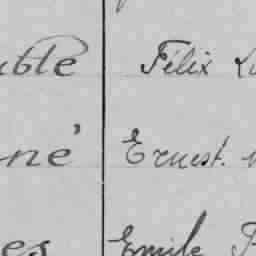 uble Félix
né Ernest.
es Emile